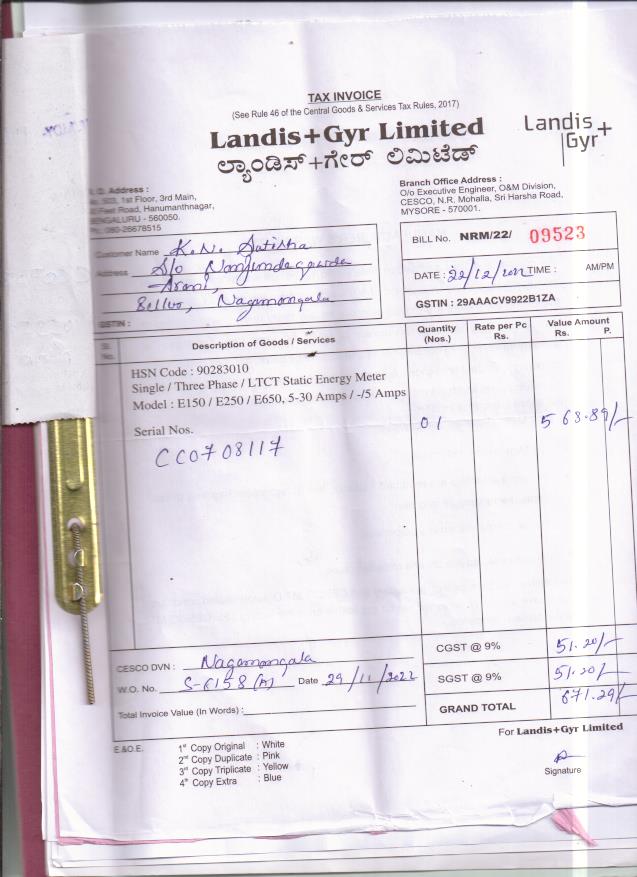 TAX INVOICE
(See Rule 46 of the Central Goods & Services Tax Rules, 2017)
Landis+Gyr Limited
ಲ್ಯಾಂಡಿಸ್+ಗೇರ್ ಲಿಮಿಟೆಡ್
Landis+
Gyr
Address :
503, 1st Floor, 3rd Main,
Feet Road, Hanumanthnagar,
BENGALURU - 560050.
Ph: 080-26678515
Branch Office Address :
O/o Executive Engineer, O&M Division,
CESCO, N.R. Mohalla, Sri Harsha Road,
MYSORE - 570001.
Customer Name K.N. Satisha
Address S/o Nanjundegowda
Arani,
Bellur, Nagamangala
GSTIN :
BILL No. NRM/22/ 09523
DATE : 22/12/2022 TIME : AM/PM
GSTIN : 29AAACV9922B1ZA
Sl. No. Description of Goods / Services Quantity (Nos.) Rate per Pc Rs. Value Amount Rs. P.
HSN Code : 90283010
Single / Three Phase / LTCT Static Energy Meter
Model : E150 / E250 / E650, 5-30 Amps / -/5 Amps
Serial Nos. 01 568.89/-
CC0708117
CESCO DVN : Nagamangala
W.O. No. S-6158 Date 29/11/2022
Total Invoice Value (In Words) :
CGST @ 9% 51.20/-
SGST @ 9% 51.20/-
GRAND TOTAL 671.29/-
For Landis+Gyr Limited
E.&O.E.
1st Copy Original : White
2nd Copy Duplicate : Pink
3rd Copy Triplicate : Yellow
4th Copy Extra : Blue
Signature